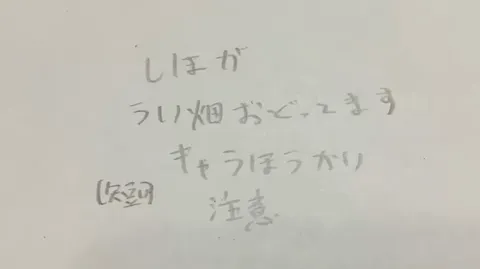 しほが
うり畑おどってます
キャラほうかい
注意